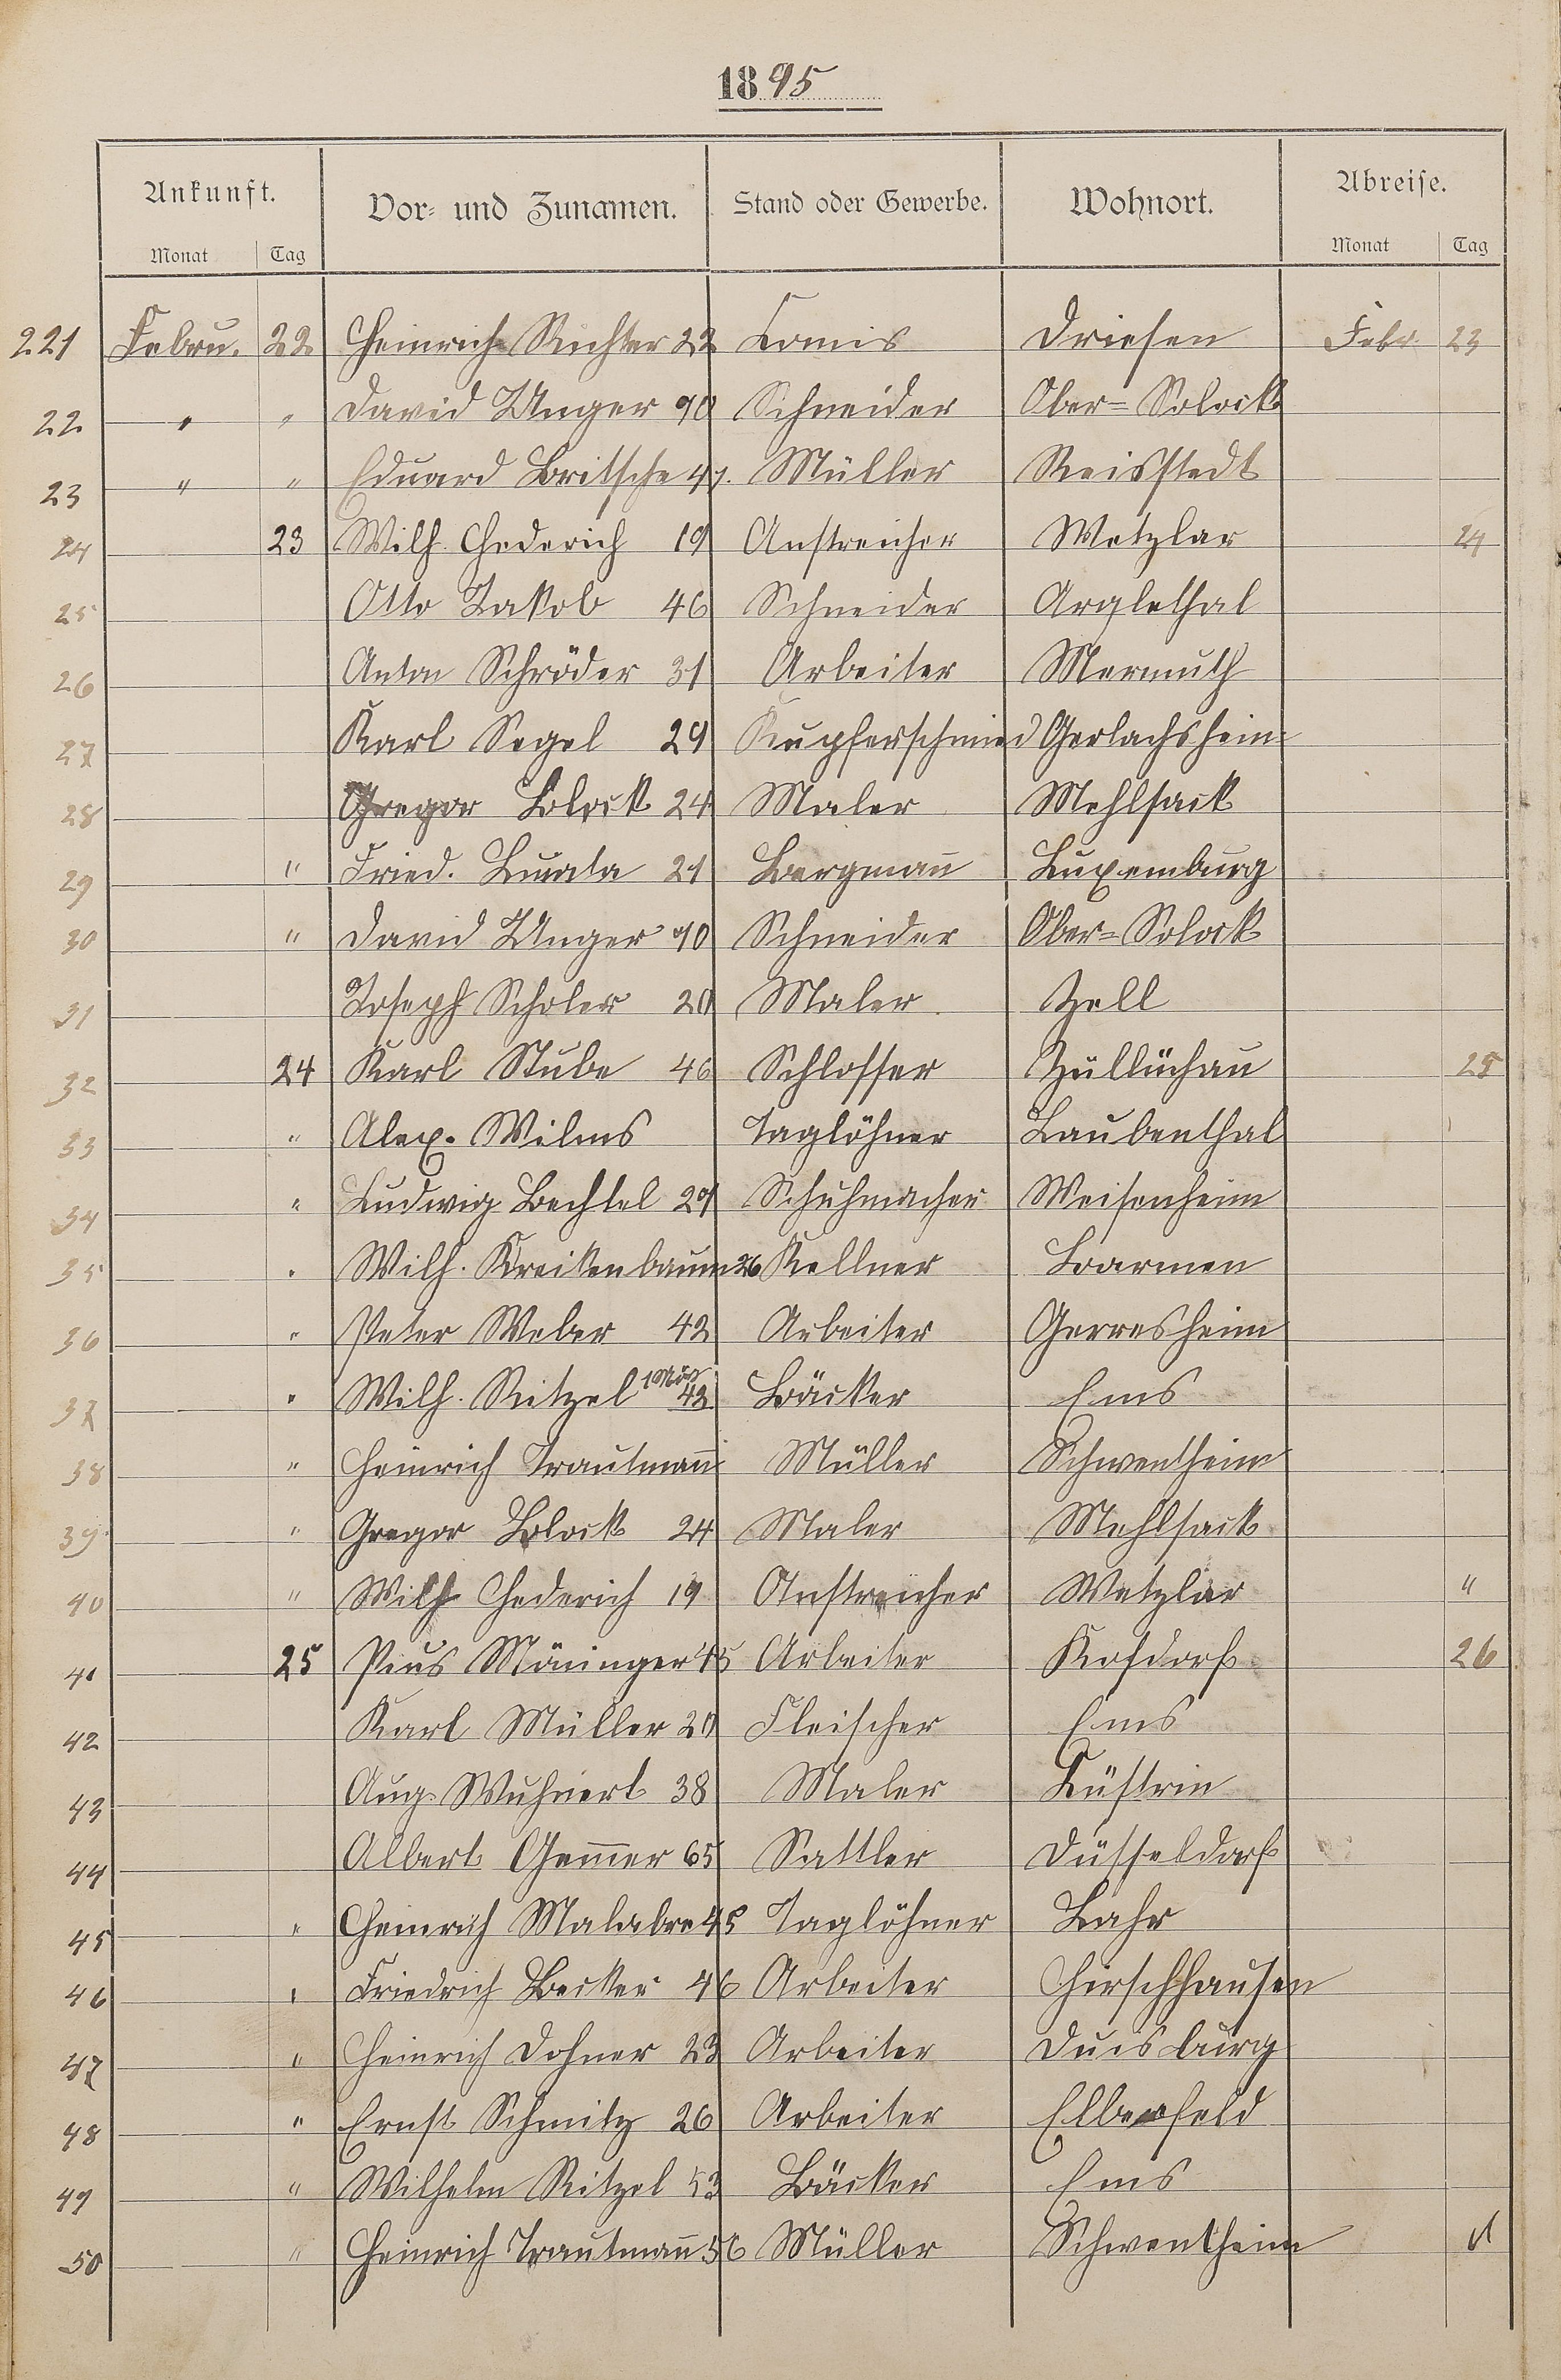 1895
Ankunft. Vor- und Zunamen. Stand oder Gewerbe. Wohnort. Abreise.
Monat Tag Monat Tag
221 Febru. 22 Heinrich Richter 22 Comis Driesen Febr. 23
22 " " David Unger 90 Schneider Ober-Solock
23 " " Eduard Britsche 47. Müller Reisstedt
24 23 Wilh. Hederich 19 Anstreicher Wetzlar 24
25 Otto Jakob 46 Schneider Arglethal
26 Anton Schröder 31 Arbeiter Mermuth
27 Karl Segel 29 Kupferschmied Gerlachsheim
28 Gregor Block 24 Maler Mehlsack
29 " Fried. 21 Bergmann̄ Luxemburg
30 " David Unger 90 Schneider Ober-Solock
31 Joseph Scholer 20 Maler Zell
32 24 Karl Stube 46 Schlosser Züllichau 25
33 " Alex. Wilms Taglöhner Laubenthal
34 " Ludwig Bechtel 29 Schuhmacher Weisenheim
35 " Wilh. Kreikenbaum 26 Kellner Barmen
36 " Peter Weber 42 Arbeiter Gerresheim
37 " Wilh. Ritzel 42 Bäcker Ems
38 " Heinrich Trautman̄ Müller Schwentheim
39 " Gregor Block 24 Maler Mehlsack
40 " Wilh Hederich 19 Anstreicher Wetzlar "
41 25 Pius Mäninger 45 Arbeiter Kosdorf 26
42 Karl Müller 20 Fleischer Ems
43 Aug. Wuhnert 38 Maler Küstrin
44 Albert Gem̄er 65 Sattler Düsseldorf
45 " Heinrich Malabre 45 Taglöhner Lahr
46 " Friedrich Becker 46 Arbeiter Hirschhausen
47 " Heinrich Dohner 23 Arbeiter Duisburg
48 " Ernst Schmitz 26 Arbeiter Elberfeld
49 " Wilhelm Ritzel 53 Bäcker Ems
50 " Heinrich Trautman̄ 56 Müller Schwentheim